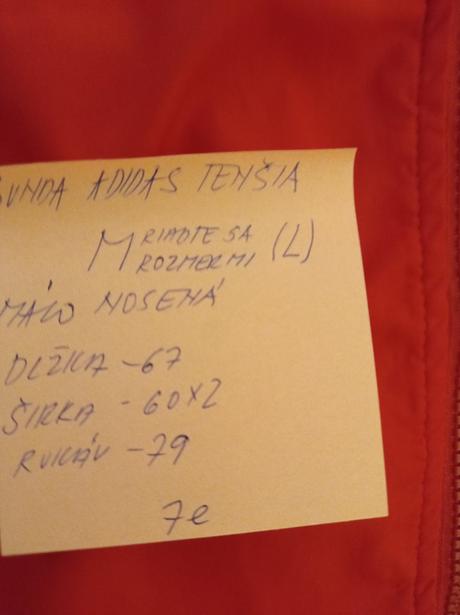 BUNDA ADIDAS TENŠIA
M RIADTE SA (L)
ROZMERMI
MÁLO NOSENÁ
DĹŽKA - 67
ŠIRKA - 60X2
RUKÁV - 79
7e